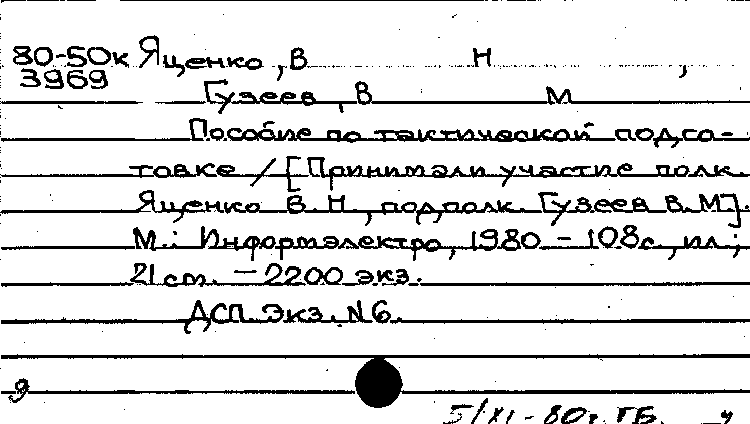 80-50к Ященко, В Н ,
3969
Гузеев, В М
Пособие по тактической подго-
товке / [Принимали участие полк.
Ященко В.Н., подполк. Гузеев В.М].
М.: Информэлектро, 1980 - 108с., ил.;
21 ст. - 2200 экз.
ДСП. Экз. N6.
9
5/XI - 80г. ГБ. ч